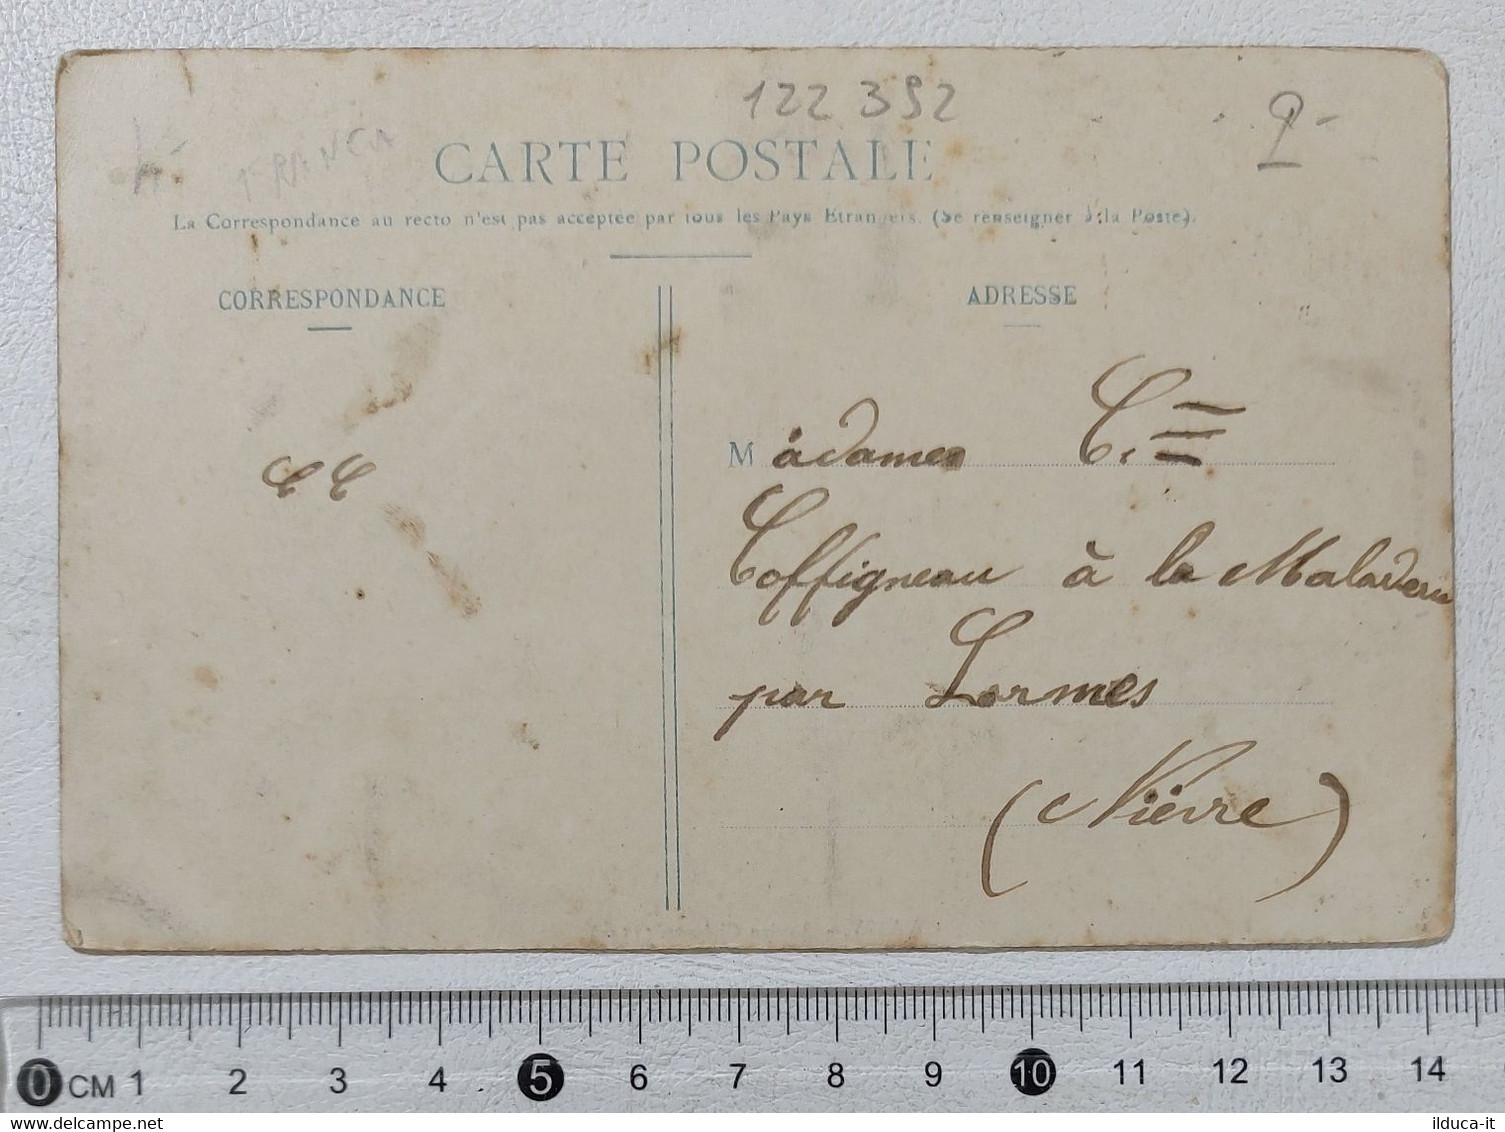 122 392 2-
FRANCA
CARTE POSTALE
La Correspondance au recto n'est pas acceptée par tous les Pays Etrangers. (Se renseigner à la Poste).
CORRESPONDANCE
ADRESSE
Madame C.
CC
Coffigneau à la Maladerie
par Lormes
(Nièvre)
0 CM 1 2 3 4 5 6 7 8 9 10 11 12 13 14
www.delcampe.net
ilduca-it